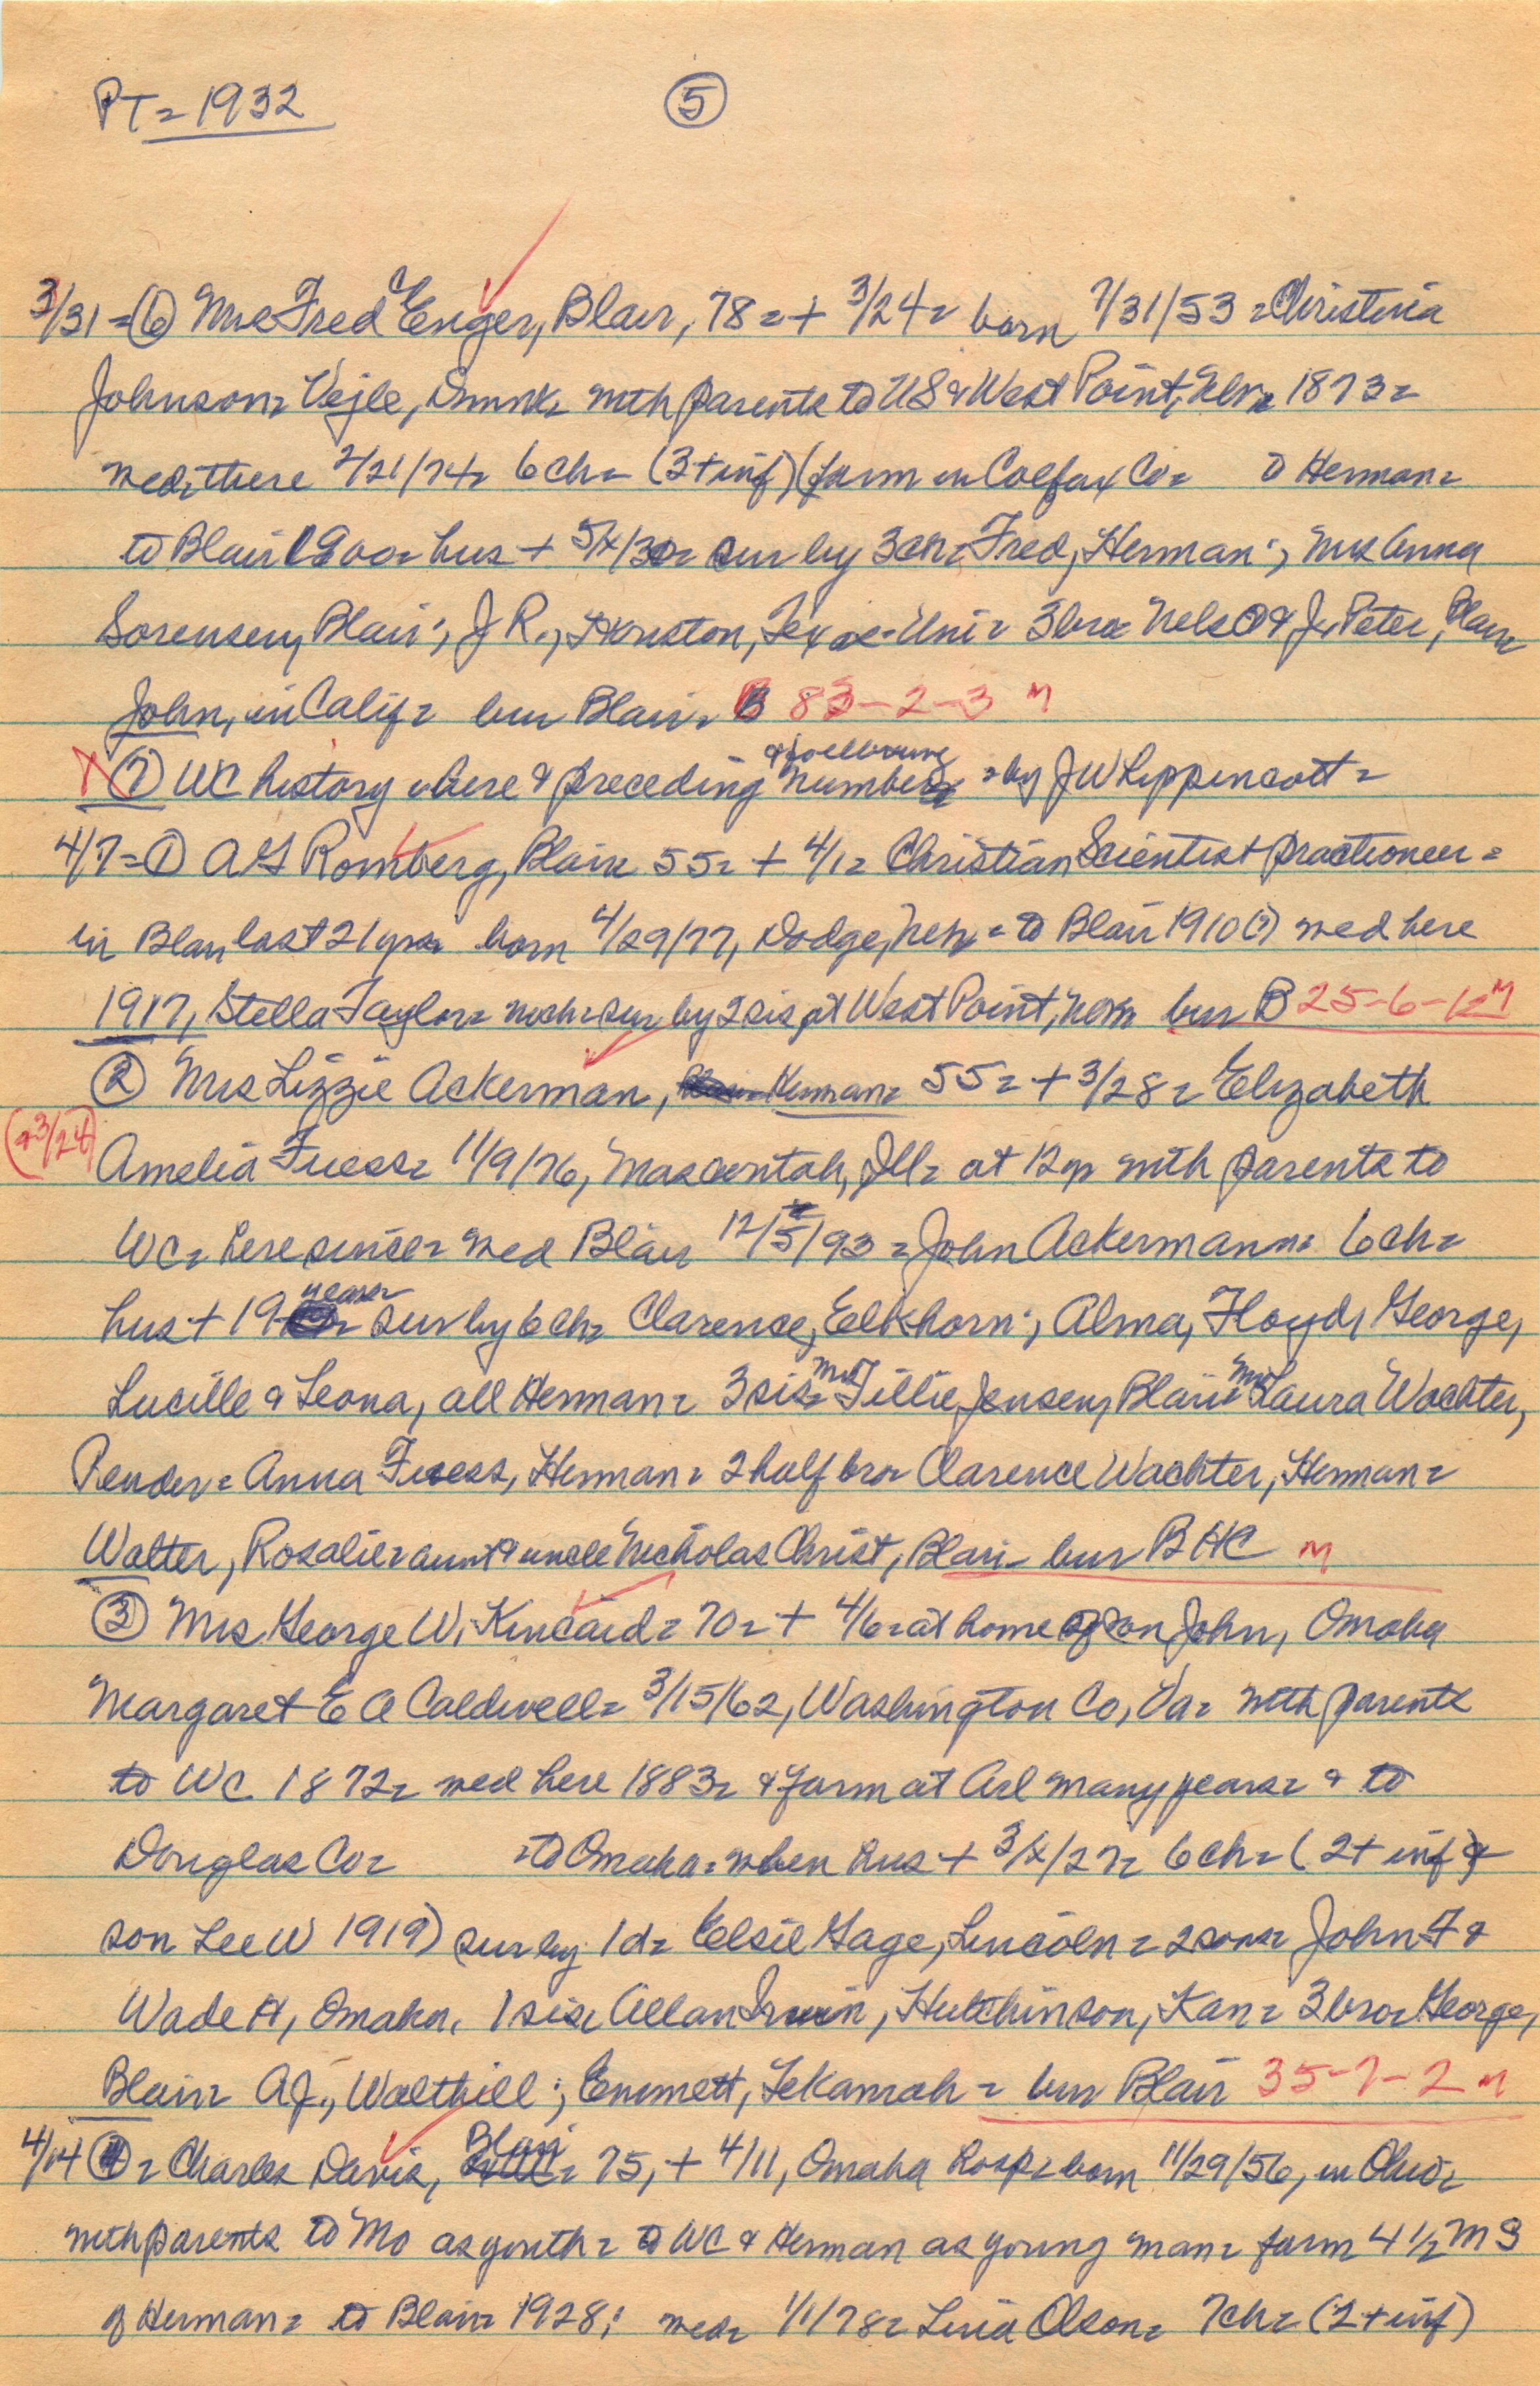 PT = 1932
5
3/31 = 6 Mrs Fred C Enger, Blair, 78 = + 3/24 = born 7/31/53 = Christina
Johnson = Vejle, Dnmk = with parents to US & West Point, Nebr = 1873 =
wed there 2/21/74 = 6 ch = (3 + inf) (farm in Colfax Co = to Herman =
to Blair 1900 = hus + 5/x/30 = sur by 3 ch = Fred, Herman; Mrs Anna
Sorensen, Blair; J R., Houston, Texas Uni = 3 bro = Nels O & J. Peter, Blair
John, in Calif = bur Blair = B 83-2-3 M
7 WC history here & preceding & following numbers = by J W Lippencott =
4/7 = 1 A G Romberg, Blair 55 = + 4/1 = Christian Scientist practioneer =
in Blair last 21 yrs = born 4/29/77, Dodge, Neb = to Blair 1910(?) wed here
1917, Stella Taylor = no ch = sur by 2 sis at West Point, Nebr bur B 25-6-12 M
2 Mrs Lizzie Ackerman, Herman = 55 = + 3/28 = Elizabeth
(& 3/24)
Amelia Fuess = 11/9/76, Mascoutah, Ill = at 12 yr with parents to
WC = here since = wed Blair 12/5/93 = John Ackermann = 6 ch =
hus + 19 years = sur by 6 ch = Clarence, Elkhorn; Alma, Floyd, George,
Lucille & Leona, all Herman = 3 sis = Mrs Tillie Jensen, Blair = Mrs Laura Wachter,
Pender = Anna Fuess, Herman = 2 half bro = Clarence Wachter, Herman =
Walter, Rosalie = aunt & uncle Nicholas Christ, Blair = bur B HC M
3 Mrs George W. Kincaid = 70 = + 4/6 = at home of son John, Omaha
Margaret E A Caldwell = 3/15/62, Washington Co, Va = with parents
to WC 1872 = wed here 1883 = & farm at Arl many years = & to
Douglas Co = to Omaha = when hus + 3/x/27 = 6 ch = (2 + inf &
son Lee W 1919) sur by 1 d = Elsie Gage, Lincoln = 2 sons = John F &
Wade H, Omaha. 1 sis = Allan Irwin, Hutchinson, Kan = 3 bro = George,
Blair = A J., Walthill; Emmett, Tekamah = bur Blair 35-7-2 M
4/14 4 = Charles Davis, Blair = 75, + 4/11, Omaha hosp = born 11/29/56, in Ohio =
with parents to Mo as youth = to WC & Herman as young man = farm 4 1/2 M S
of Herman = to Blair = 1928; wed = 1/1/78 = Lina Olson = 7 ch = (2 + inf)